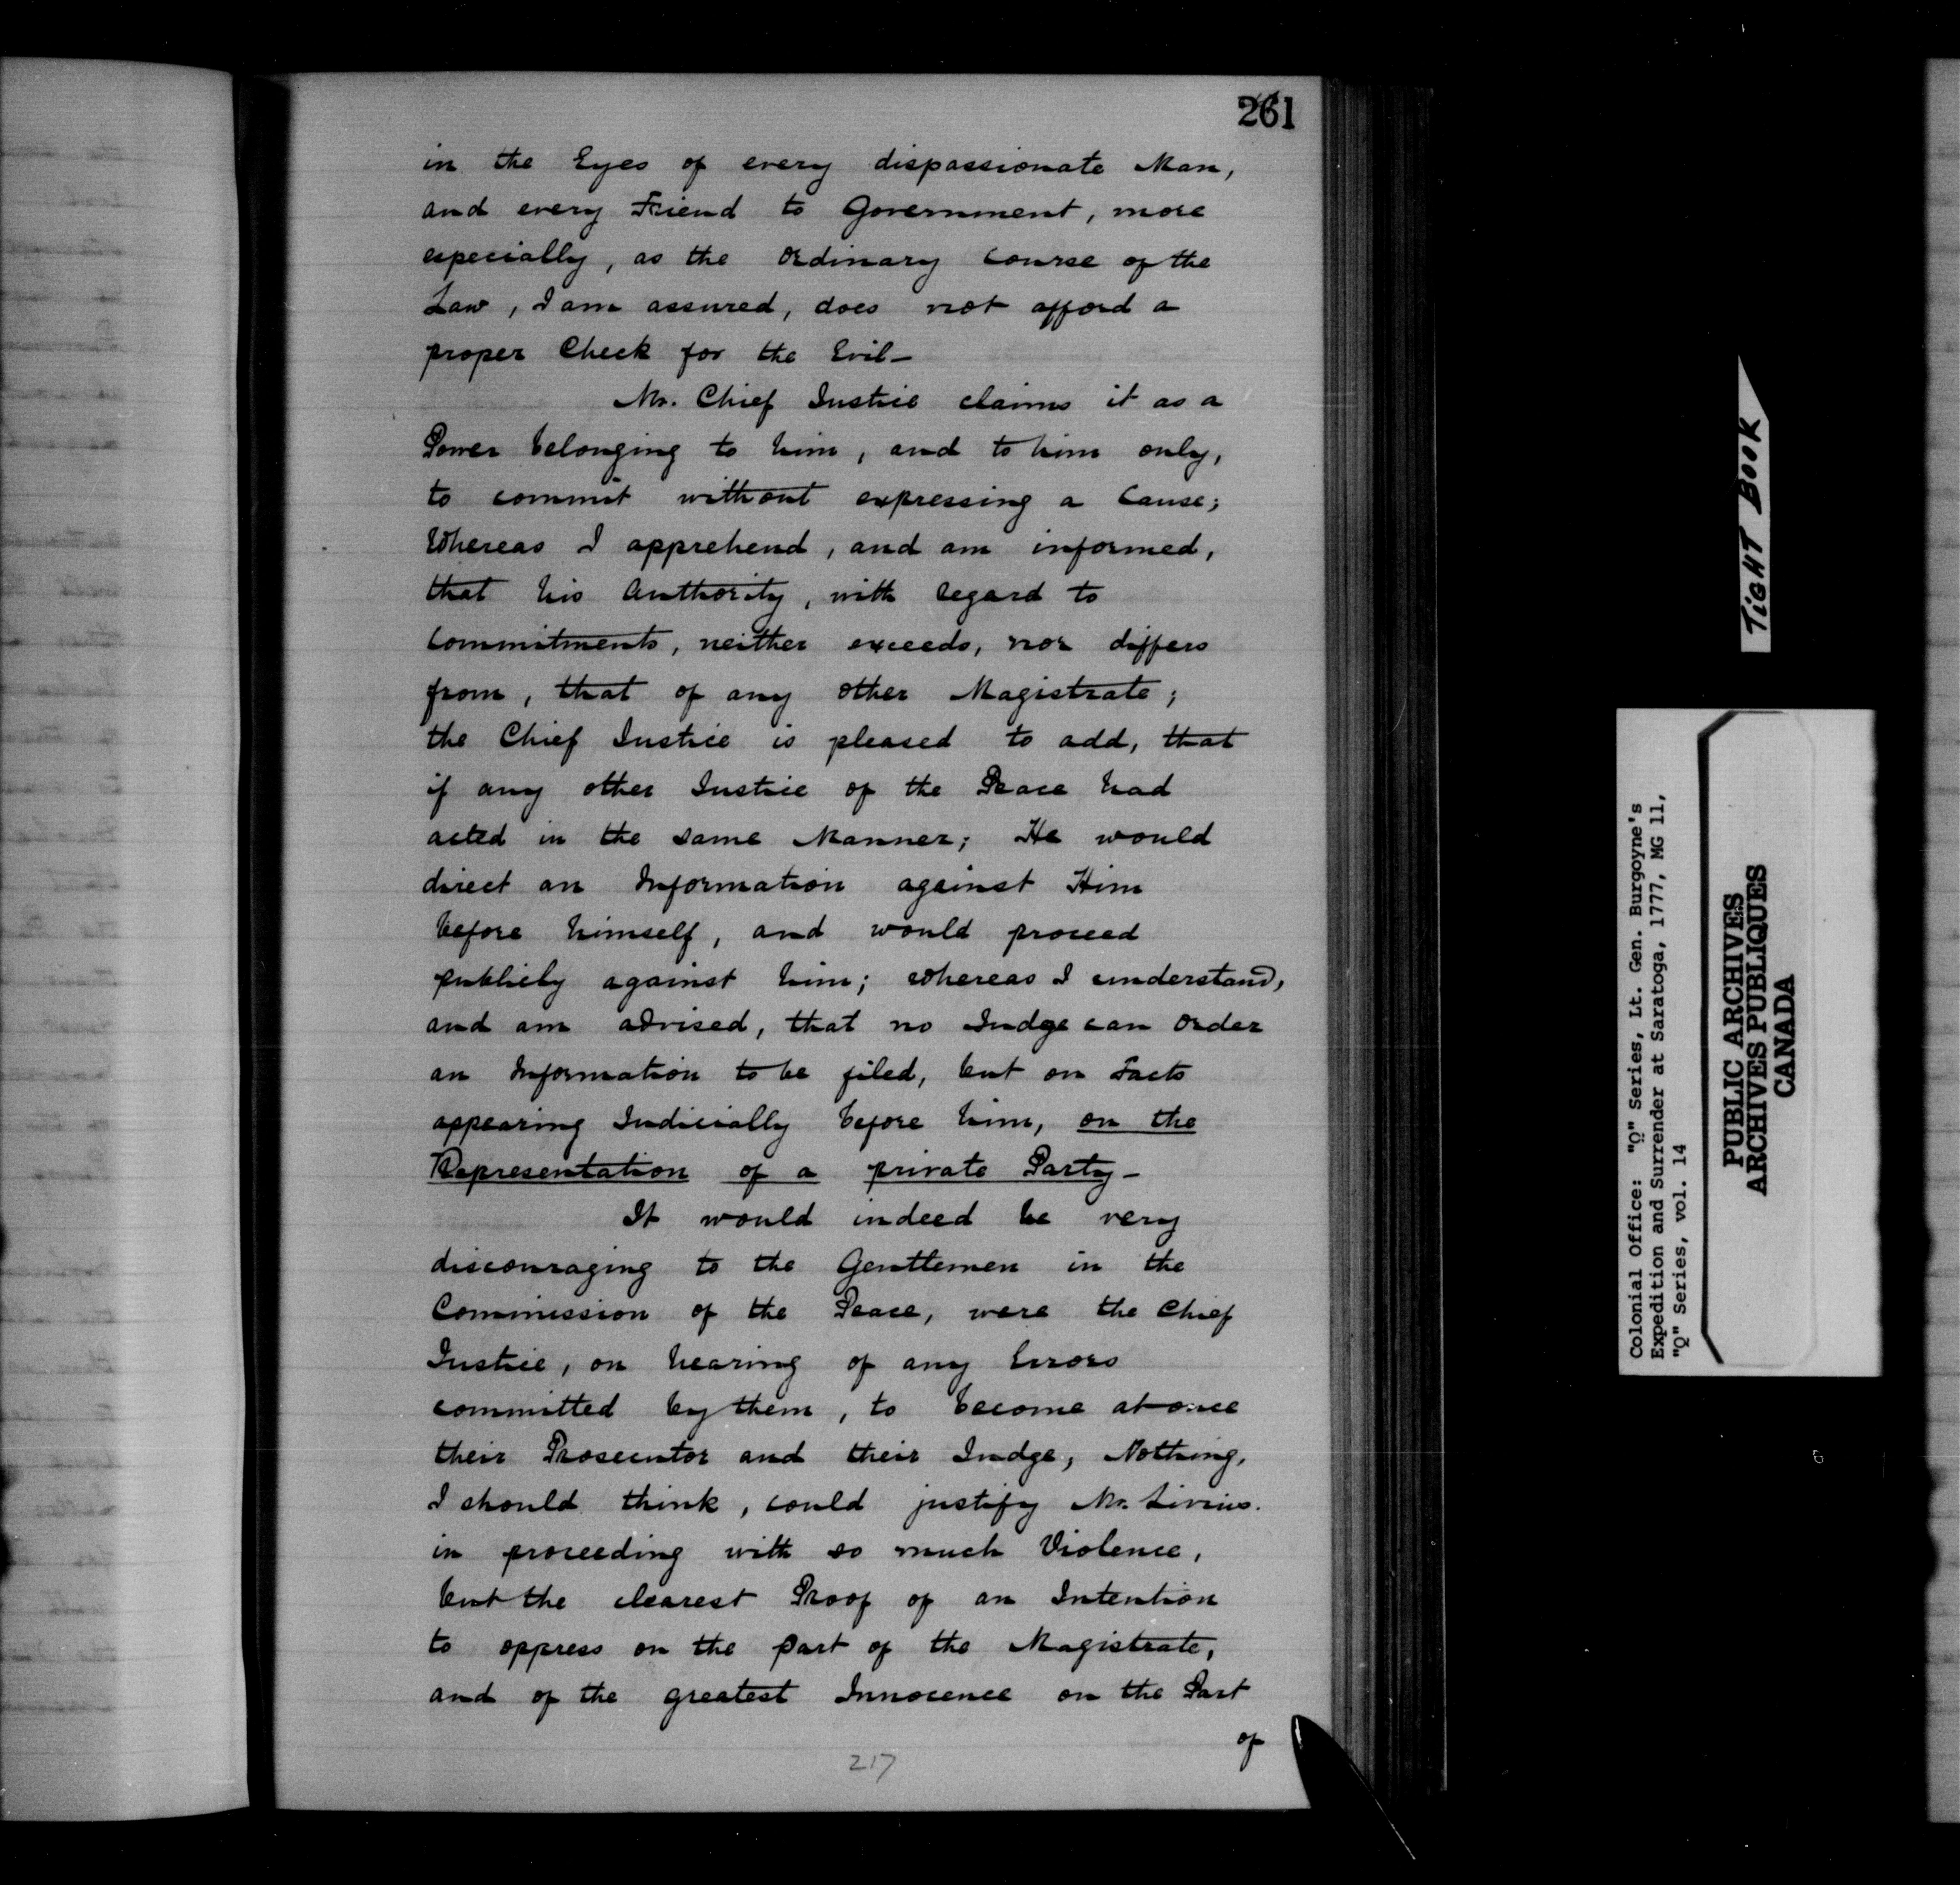 261
in the Eyes of every dispassionate Man,
and every Friend to Government, more
especially, as the Ordinary Course of the
Law, I am assured, does not afford a
proper Check for the Evil—
Mr. Chief Justice claims it as a
Power belonging to him, and to him only,
to commit without expressing a Cause;
Whereas I apprehend, and am informed,
that his Authority, with Regard to
Commitments, neither exceeds, nor differs
from, that of any other Magistrate;
the Chief Justice is pleased to add, that
if any other Justice of the Peace had
acted in the same Manner; He would
direct an Information against Him
before himself, and would proceed
publicly against him; whereas I understand,
and am advised, that no Judge can order
an Information to be filed, but on Facts
appearing Judicially before him, on the
Representation of a private Party—
It would indeed be very
discouraging to the Gentlemen in the
Commission of the Peace, were the Chief
Justice, on hearing of any Errors
committed by them, to become at once
their Prosecutor and their Judge, Nothing,
I should think, could justify Mr. Livius.
in proceeding with so much Violence,
but the clearest Proof of an Intention
to oppress on the part of the Magistrate,
and of the greatest Innocence on the Part
of
217
TIGHT BOOK
Colonial Office: "Q" Series, Lt. Gen. Burgoyne's
Expedition and Surrender at Saratoga, 1777, MG 11,
"Q" Series, vol. 14
PUBLIC ARCHIVES
ARCHIVES PUBLIQUES
CANADA